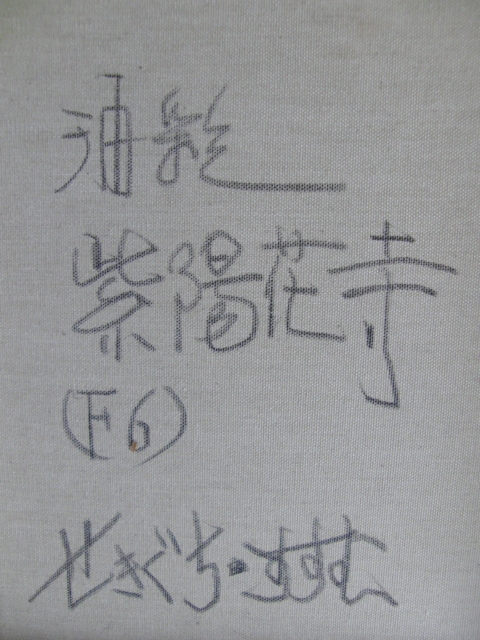 油彩
紫陽花寺
(F6)
せきぐち・すすむ